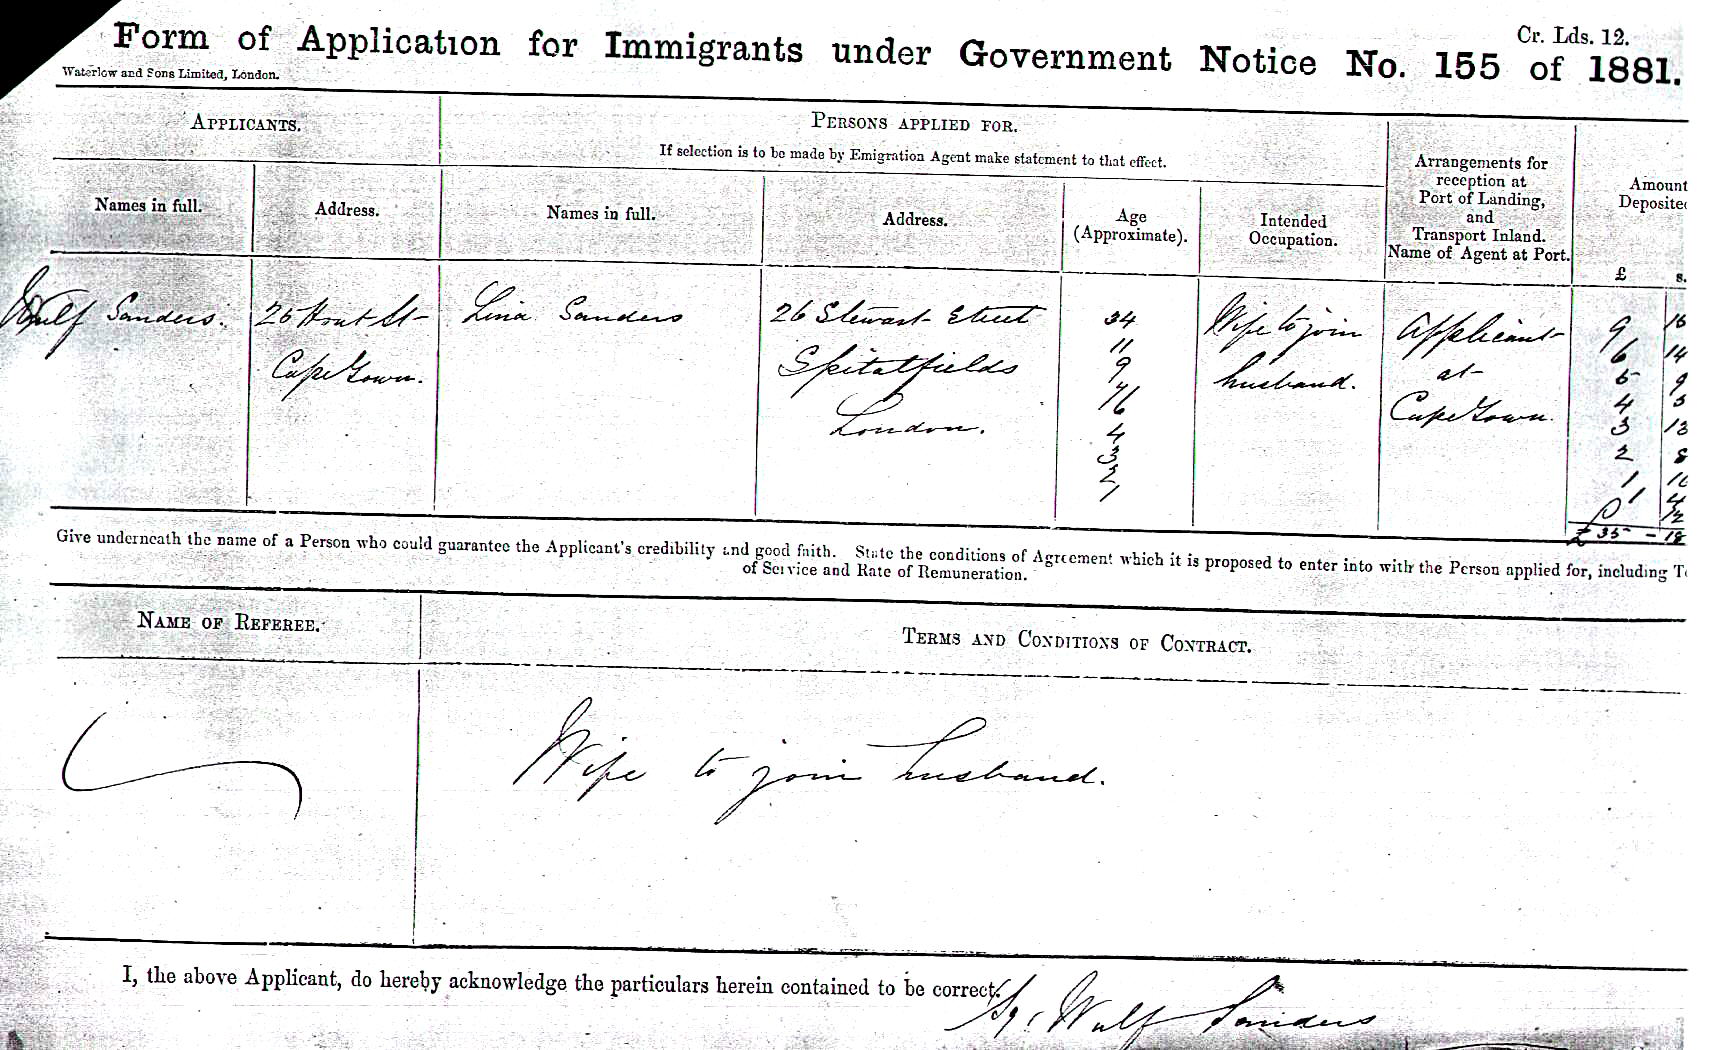 Cr. Lds. 12.
Form of Application for Immigrants under Government Notice No. 155 of 1881.
Waterlow and Sons Limited, London.
APPLICANTS.
PERSONS APPLIED FOR.
If selection is to be made by Emigration Agent make statement to that effect.
Names in full.
Address.
Names in full.
Address.
Age
(Approximate).
Intended
Occupation.
Arrangements for
reception at
Port of Landing,
and
Transport Inland.
Name of Agent at Port.
Amount
Deposited
£ s.
Wulf Sanders.
26 Hout St
Cape Town.
Lina Sanders
26 Stewart Street
Spitalfields
London.
34
11
9
7/6
4
3
2
1
Wife to join
husband.
Applicant
at
Cape Town.
9 16
6 14
5 9
4 3
3 13
2 8
1 10
1 4
0 12
£35 - 18
Give underneath the name of a Person who could guarantee the Applicant's credibility and good faith. State the conditions of Agreement which it is proposed to enter into with the Person applied for, including
of Service and Rate of Remuneration.
NAME OF REFEREE.
TERMS AND CONDITIONS OF CONTRACT.
Wife to join husband.
I, the above Applicant, do hereby acknowledge the particulars herein contained to be correct.
Wulf Sanders